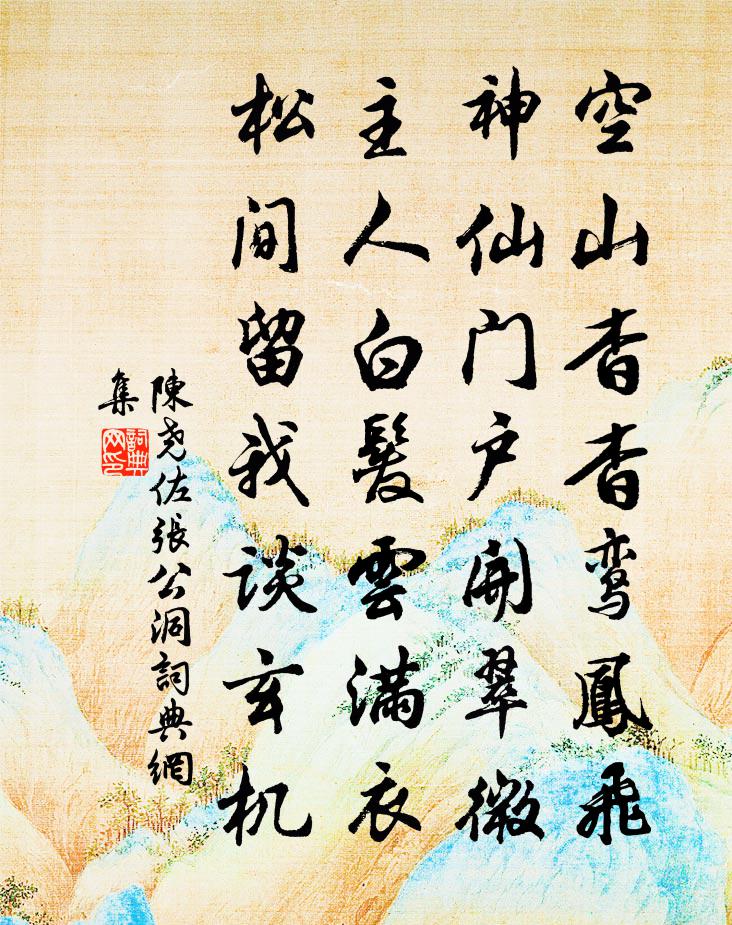 空山杳杳鸾鳳飛
神仙门户開翠微
主人白髮雲満衣
松间留我谈玄机
陳尧佐張公洞詞典網
集
詞典
网印